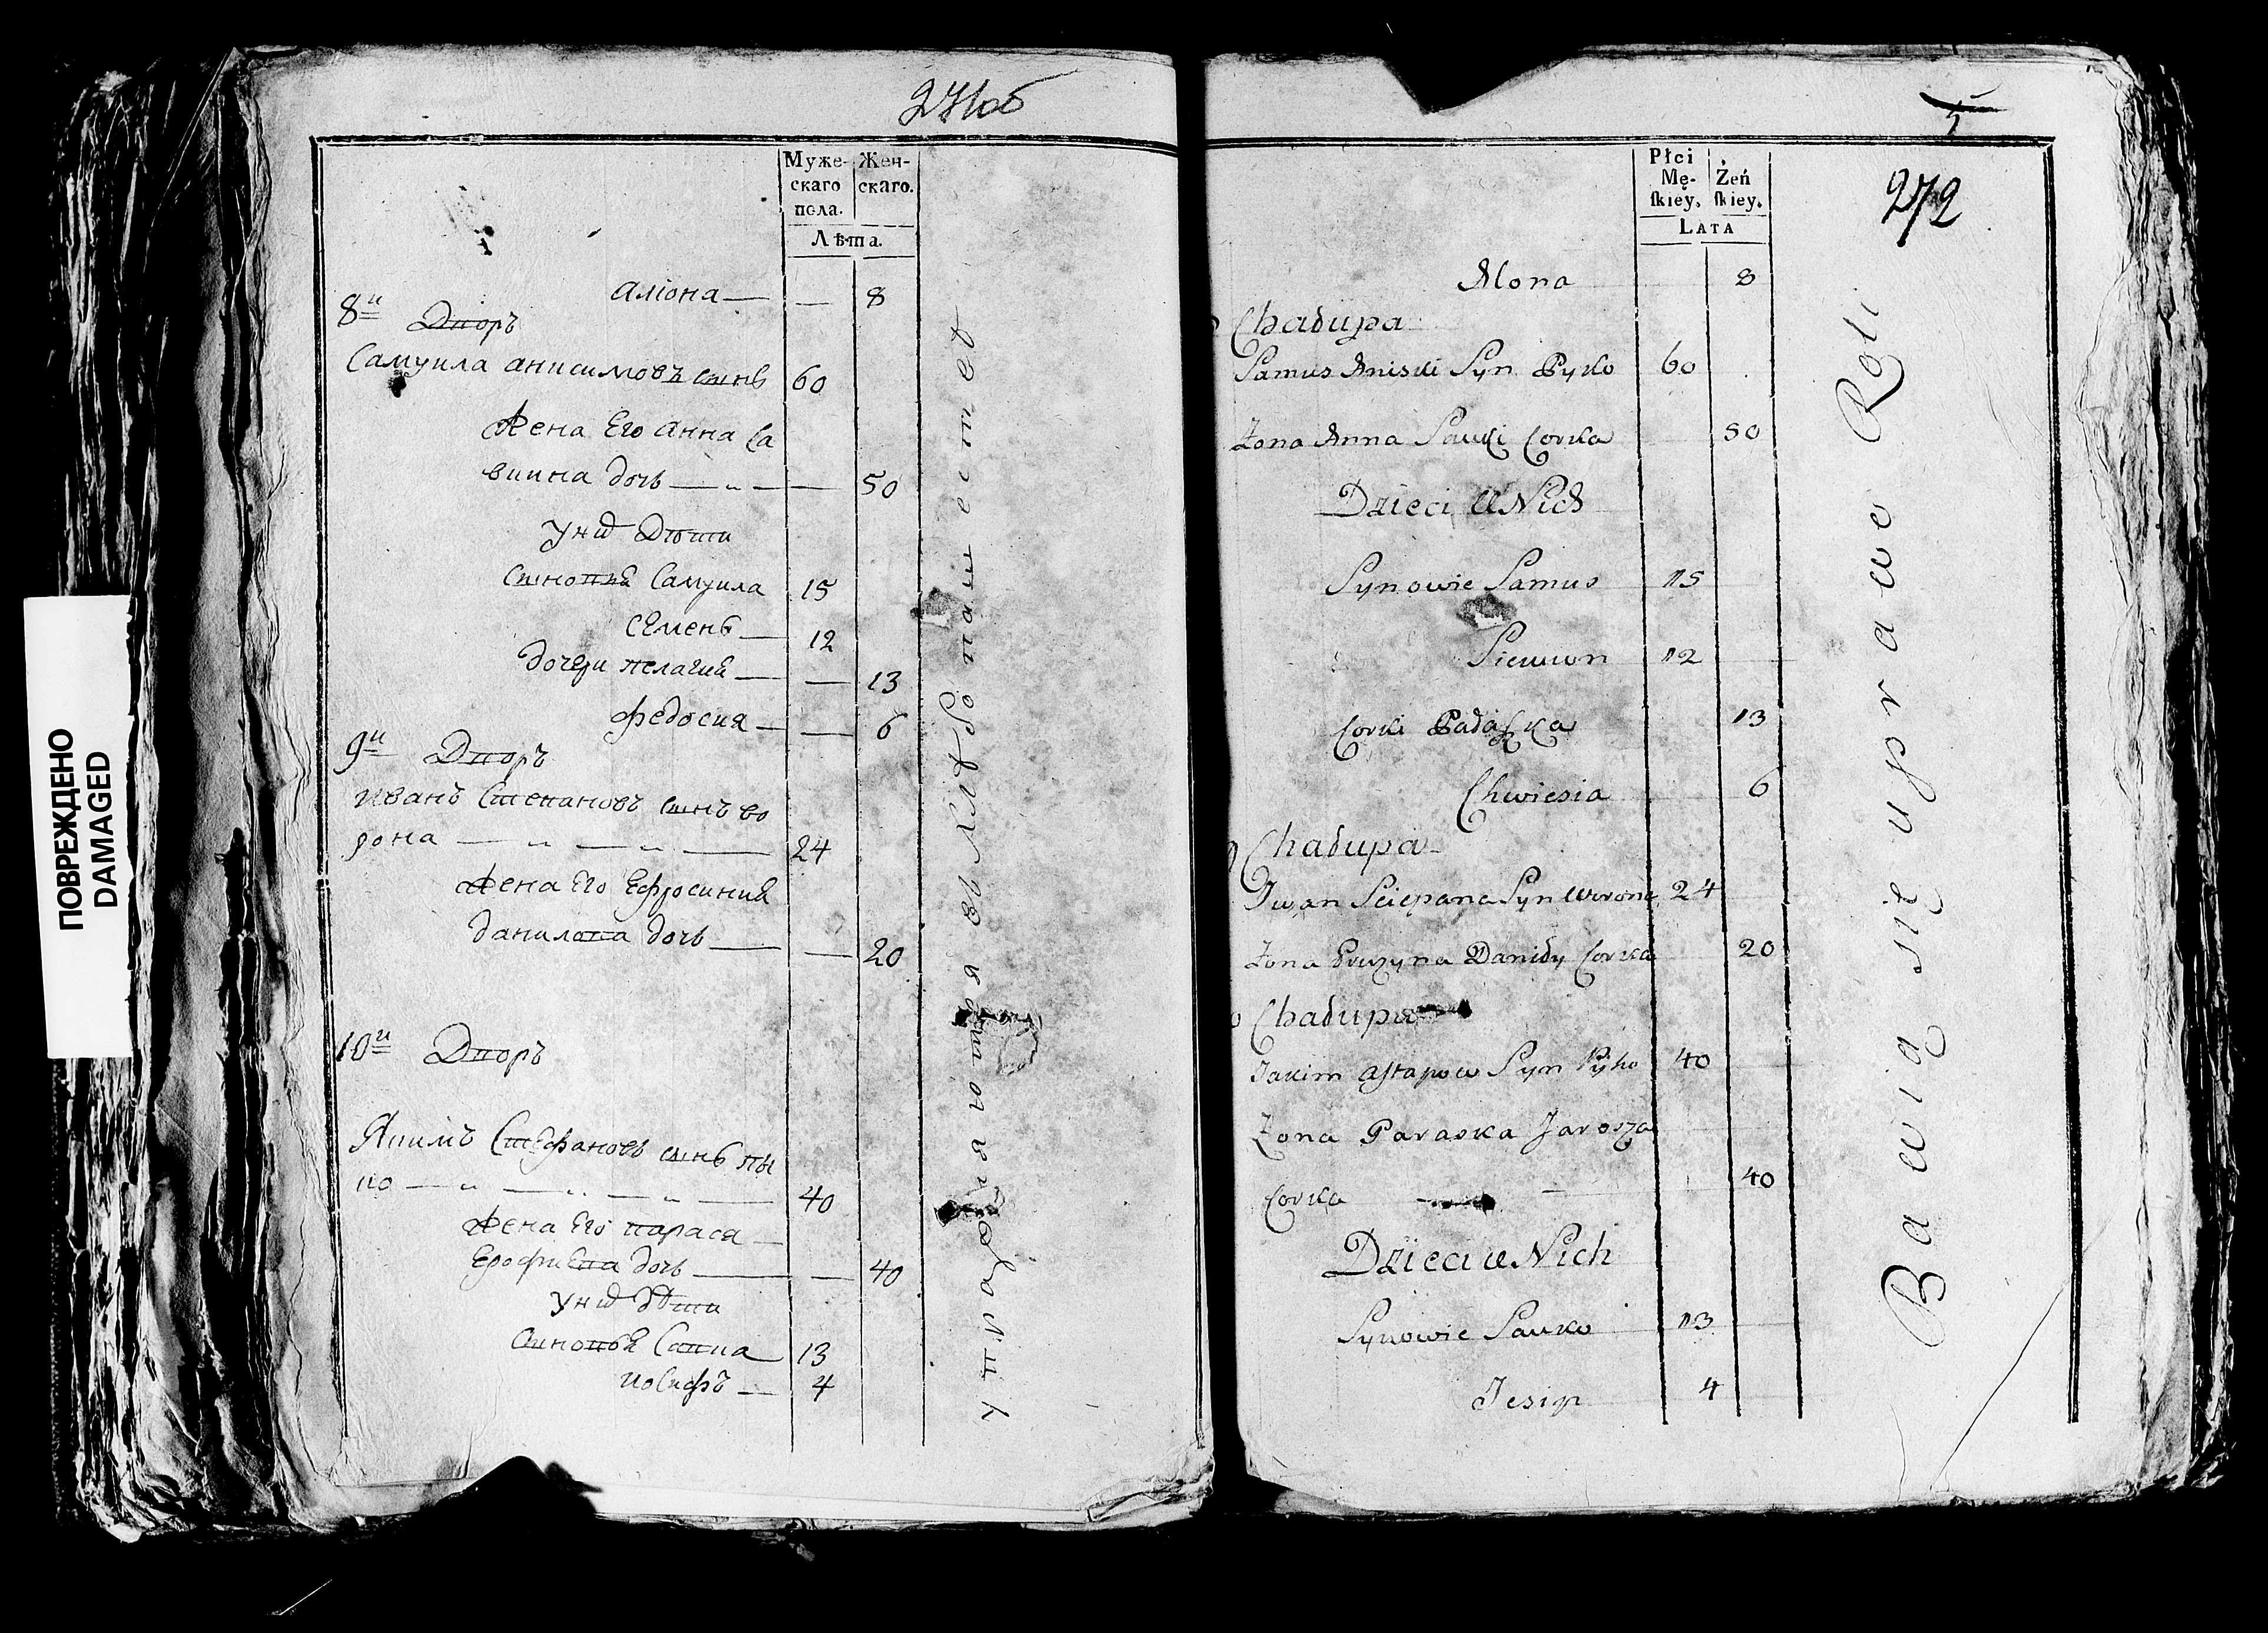 ПОВРЕЖДЕНО
DAMAGED
271об
Муже-
скаго
пола.
Жен-
скаго.
Лѣта.
алiона — — 8
8й Дворъ
Самуила анисимовъ сынъ 60
Жена Его анна Са
вина дочь — 50
У них Дѣти
Сыновья Самуила 15
Семенъ — 12
дочери пелагия — — 13
федосия — — 6
9й Дворъ
Иванъ Степановъ сынъ во
рона — 24
Жена Его Ефросиния
данилова дочь — — 20
10й Дворъ
Якимъ Стефановъ сынъ пы
ко — 40
Жена Его параса —
Ерофиева дочь — — 40
У них дѣти
Сыновья Савка — 13
иосифъ — 4
упражняются въ хлѣбопашестве
5
272
Płci
Mę-
ſkiey.
Żeń
ſkiey.
Lata
Alona 8
Chałupa
Samus Aniski Syn Pyko 60
Żona Anna Sawki Corka 50
Dzieci u Nich
Synowie Samus 15
Siemion 12
Corki Pałaszka 13
Chwiesia 6
Chałupa
Iwan Sciepana Syn Worona 24
Żona Pruzyna Daniły Corka 20
Chałupa
Jakim Astapow Syn Pyko 40
Żona Paraska Jarosza
Corka 40
Dzieci u Nich
Synowie Sawka 13
Jesip 4
Bawią się uprawe Roli